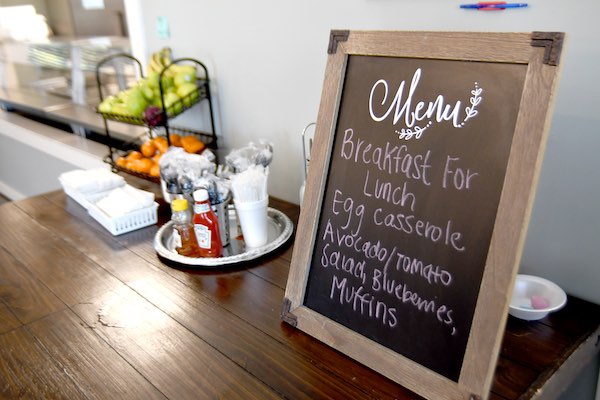 Menu
Breakfast For
Lunch
Egg Casserole
Avocado/Tomato
Salad, Blueberries,
Muffins